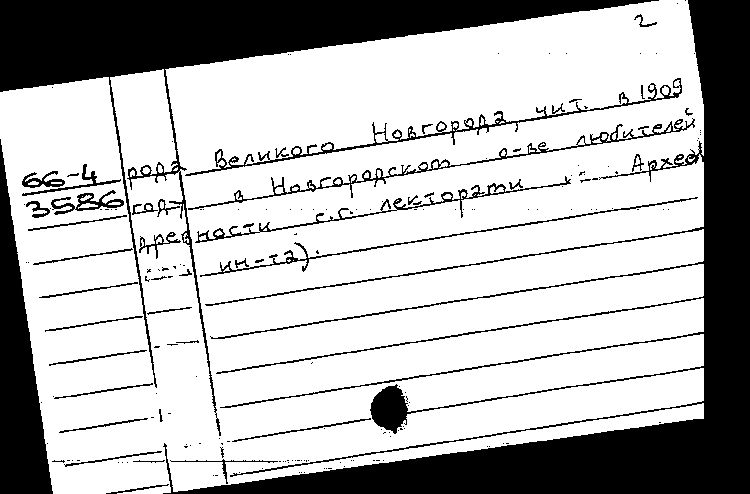 2
66-4 рода Великого Новгорода, чит. в 1909
3586 году в Новгородском о-ве любителей
древности с.г. лекторати Археол
ин-та).